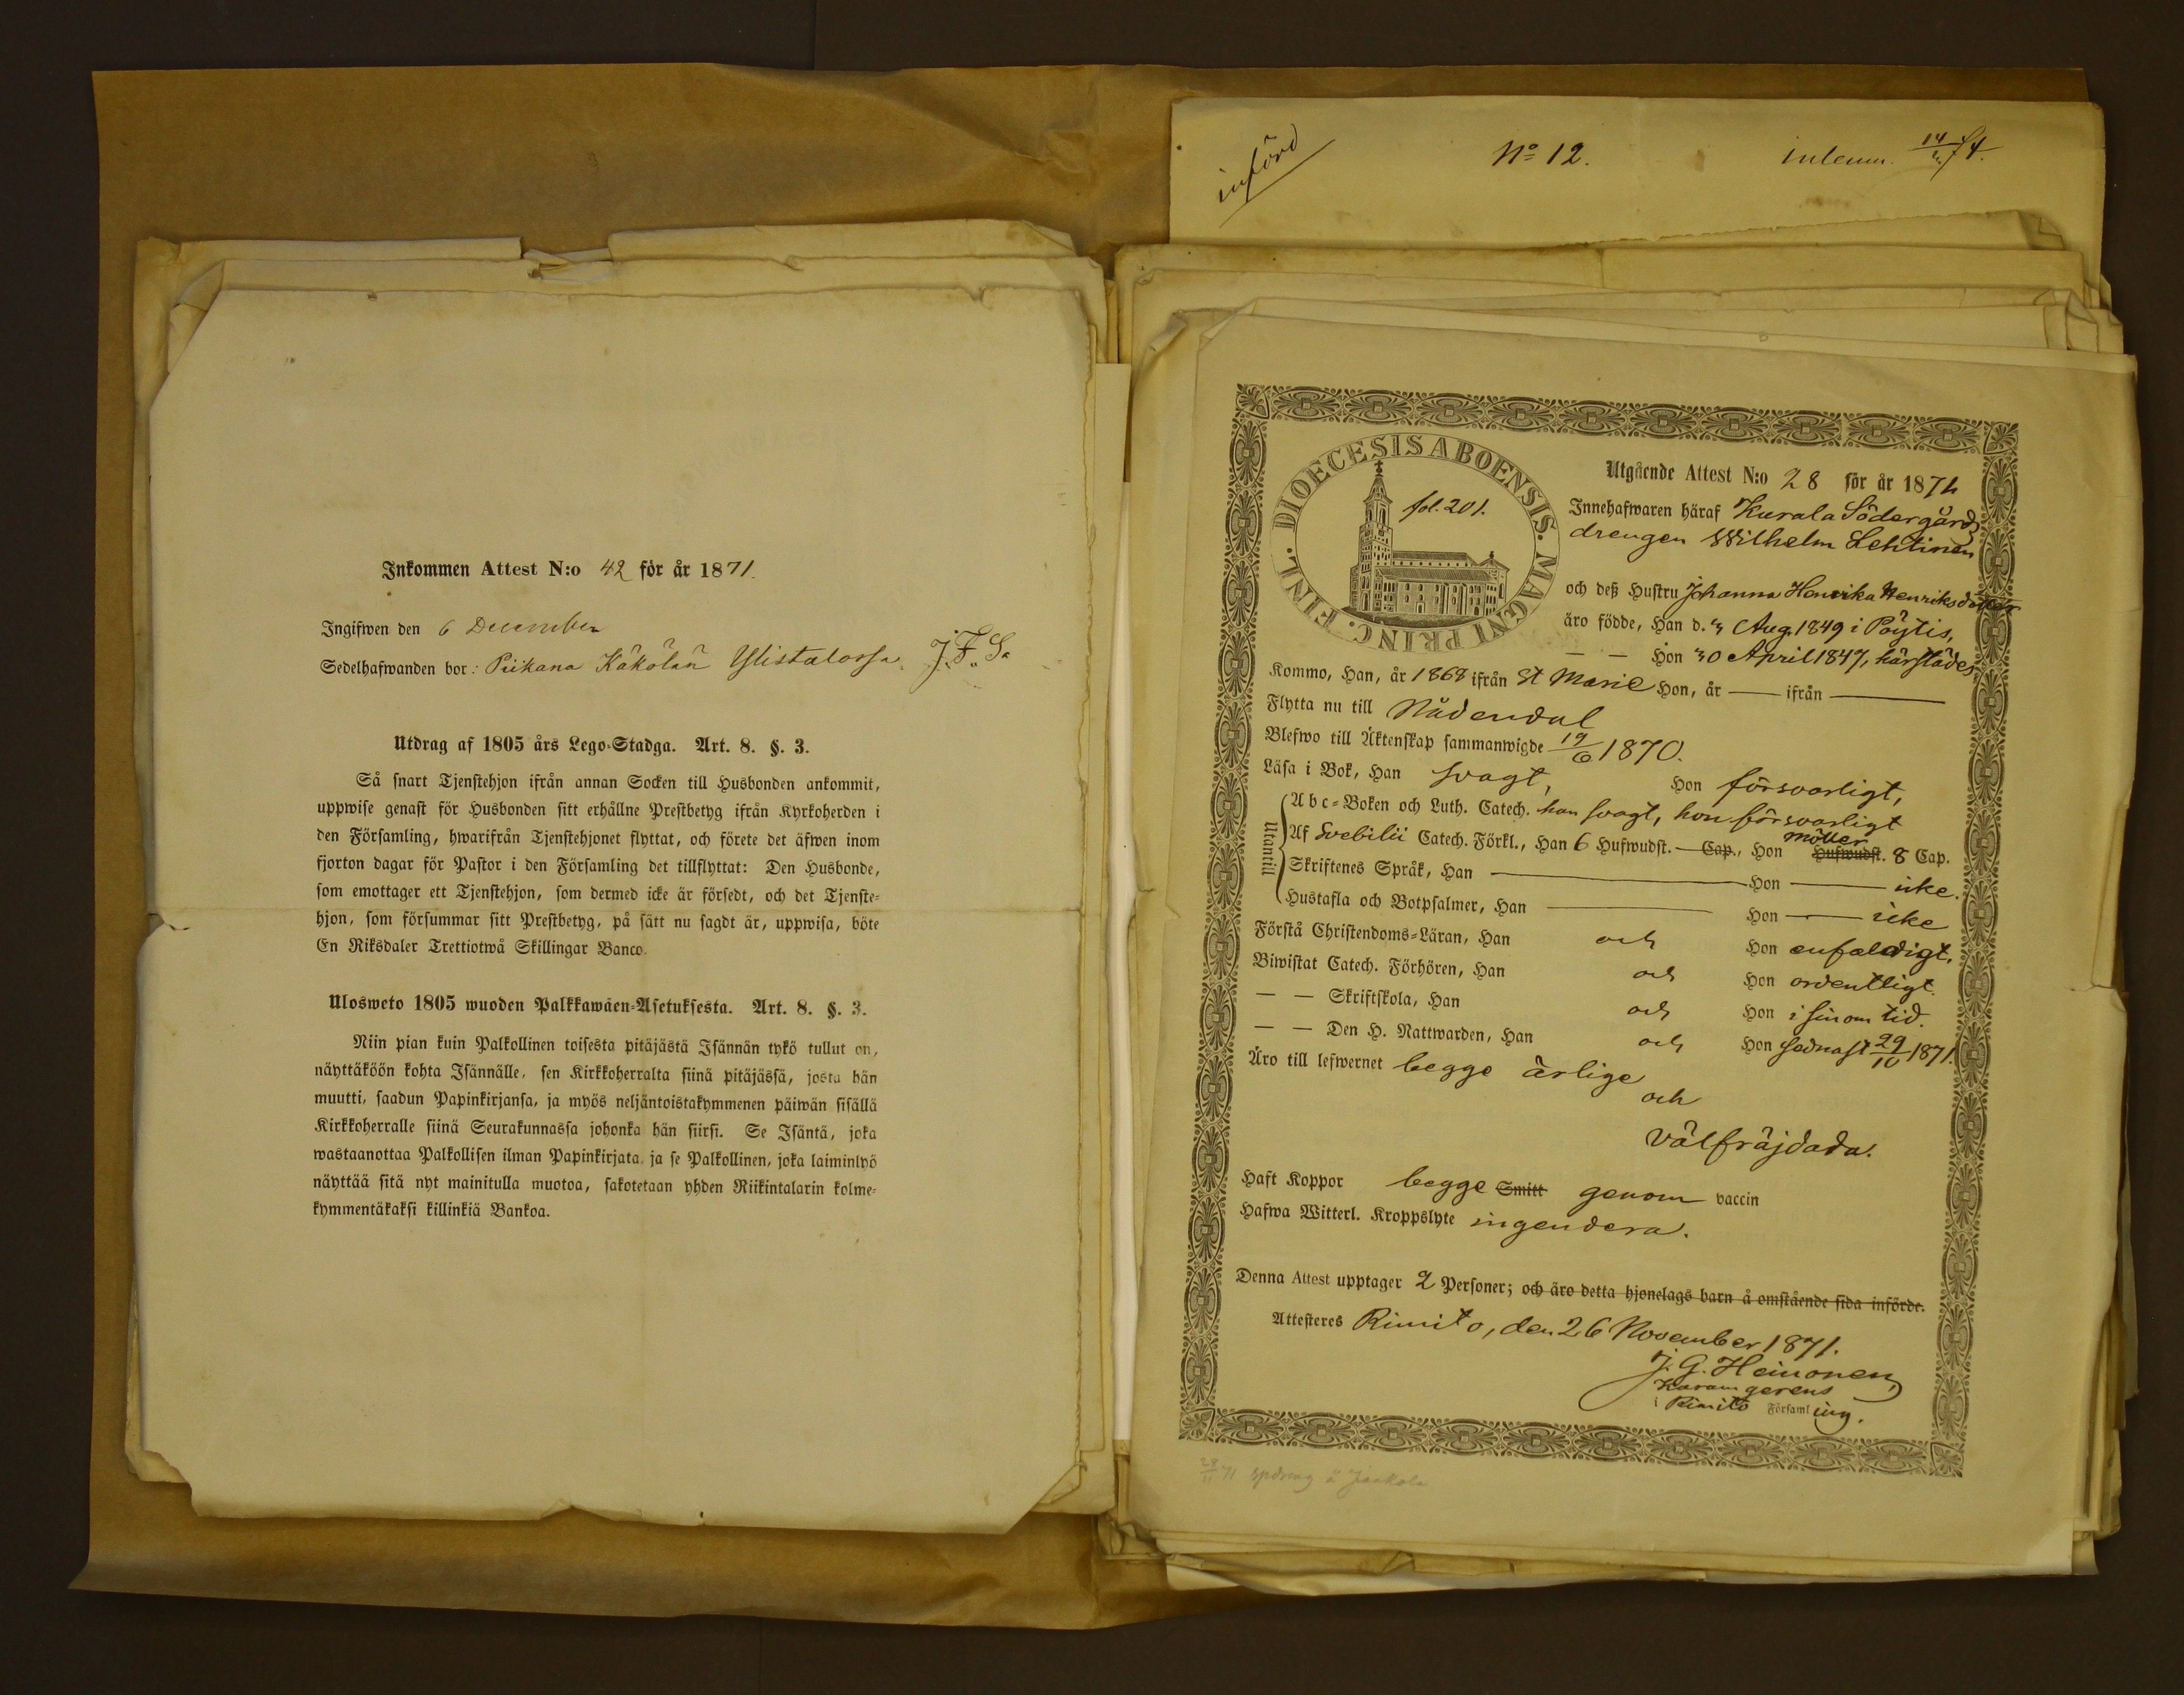 Inkommen Attest N:o 42 för år 1871.
Ingifwen den 6 December
Sedelhafwanden bor: Piikana Käkölän Ylistalossa. J. F. S.
Utdrag af 1805 års Lego-Stadga. Art. 8. §. 3.
Så snart Tjenstehjon ifrån annan Socken till Husbonden ankommit,
uppwise genast för Husbonden sitt erhållne Prestbetyg ifrån Kyrkoherden i
den Församling, hwarifrån Tjenstehjonet flyttat, och förete det äfwen inom
fjorton dagar för Pastor i den Församling det tillflyttat: Den Husbonde,
som emottager ett Tjenstehjon, som dermed icke är försedt, och det Tjenste-
hjon, som försummar sitt Prestbetyg, på sätt nu sagdt är, uppwisa, böte
En Riksdaler Trettiotwå Skillingar Banco.
Ulosweto 1805 wuoden Palkkawäen-Asetuksesta. Art. 8. §. 3.
Niin pian kuin Palkollinen toisesta pitäjästä Isännän tykö tullut on,
näyttäköön kohta Isännälle, sen Kirkkoherralta siinä pitäjässä, josta hän
muutti, saadun Papinkirjansa, ja myös neljäntoistakymmenen päiwän sisällä
Kirkkoherralle siinä Seurakunnassa johonka hän siirsi. Se Isäntä, joka
wastaanottaa Palkollisen ilman Papinkirjata, ja se Palkollinen, joka laiminlyö
näyttää sitä nyt mainitulla muotoa, sakotetaan yhden Riikintalarin kolme-
kymmentäkaksi killinkiä Bankoa.
införd
No 12.
inlemn. 14/ 74.
DIOECESIS ABOENSIS. MAGNI PRINC. FINL.
fol. 201.
Utgående Attest N:o 28 för år 1871
Innehafwaren häraf Kurala Södergårds
drengen Wilhelm Lehtinen,
och deß Hustru Johanna Henrika Henriksdotter
äro födde, Han d. 3 Aug. 1849 i Pöytis,
— — Hon 30 April 1847, härstädes
Kommo, Han, år 1868 ifrån St Marie Hon, år — ifrån —
Flytta nu till Nådendal
Blefwo till Äktenskap sammanwigde 19/6 1870.
Läsa i Bok, Han svagt, Hon försvarligt,
Utantill
Abc-Boken och Luth. Catech. han svagt, hon försvarligt
Af Svebilii Catech. Förkl., Han 6 Hufwudst. — Cap., Hon Hufwudst. 8 Cap.
Skriftenes Språk, Han — Hon — icke.
Hustafla och Botpsalmer, Han — Hon — icke
Förstå Christendoms-Läran, Han och Hon enfaldigt.
Biwistat Catech. Förhören, Han och Hon ordentligt.
— — Skriftskola, Han och Hon i sinom tid.
— — Den H. Nattwarden, Han och Hon sednast 29/10 1871.
Äro till lefwernet begge ärlige
och
välfräjdada.
Haft Koppor begge Smitt genom vaccin
Hafwa Witterl. Kroppslyte ingendera.
Denna Attest upptager 2 Personer; och äro detta hjonelags barn å omstående sida införde.
Attesteres Rimito, den 26 November 1871.
J. G. Heinonen,
gerens
i Rimito Församling.